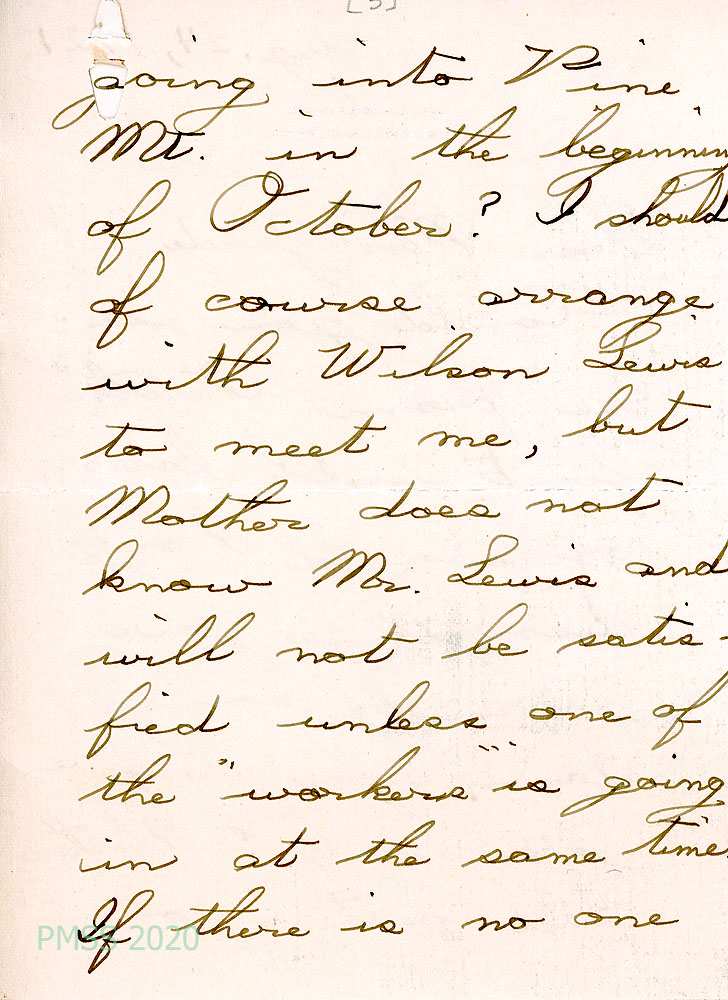 [3]
going into Pine
Mt. in the beginning
of October? I should
of course arrange
with Wilson Lewis
to meet me, but
Mother does not
know Mr. Lewis and
will not be satis-
fied unless one of
the "workers" is going
in at the same time
If there is no one
PMSS 2020